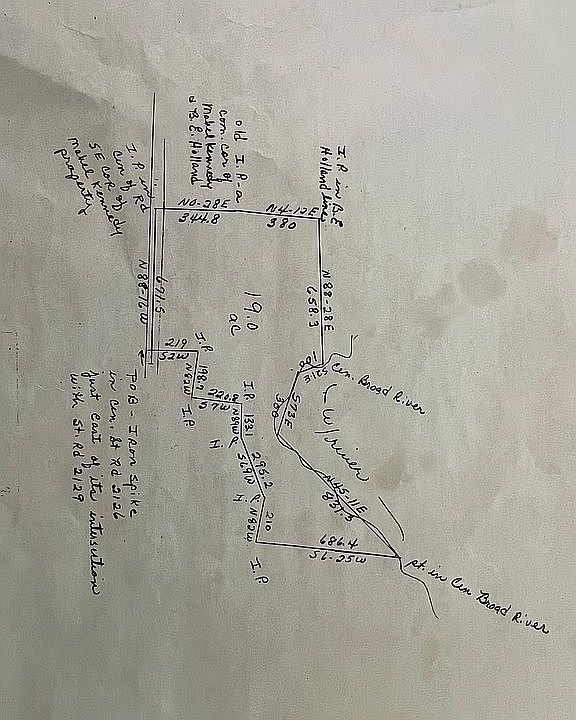 I.P. in B.E.
Holland line
old I.P. a
com. cor of
Mabel Kennedy
& B.E. Holland
I.P. in Rd
cen of Rd
SE cor of
Mabel Kennedy
property
N0-28E
344.8
N4-12E
380
N88-28E
658.3
19.0
ac
N88-16W
691.5
219
S2W
I.P.
198.2
N82W
I.P.
220.8
S7W
I.P.
133.1
N89W
296.2
S69W
I.P.
210
N82W
I.P.
686.4
S6-25W
N45-11E
831.5
S73E
300
100
S21E
Cen. Broad River
W/river
pt. in Cen Broad River
POB - Iron Spike
in cen. St Rd 2126
just East of its intersection
with St. Rd 2129